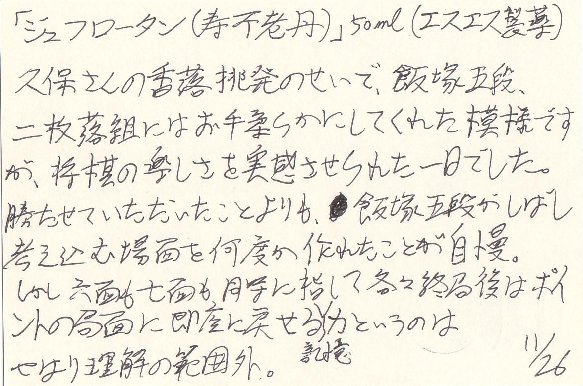 「ジュフロータン(寿不老丹)」50ml(エスエス製薬)
久保さんの香落挑発のせいで、飯塚五段、
二枚落組にはお手柔らかにしてくれた模様です
が、将棋の楽しさを実感させられた一日でした。
勝たせていただいたことよりも、飯塚五段がしばし
考え込む場面を何度か作れたことが自慢。
しかし六面も七面も同時に指して各々終局後はポイ
ントの局面に即座に戻せる力というのは
記憶
やはり理解の範囲外。
11/26